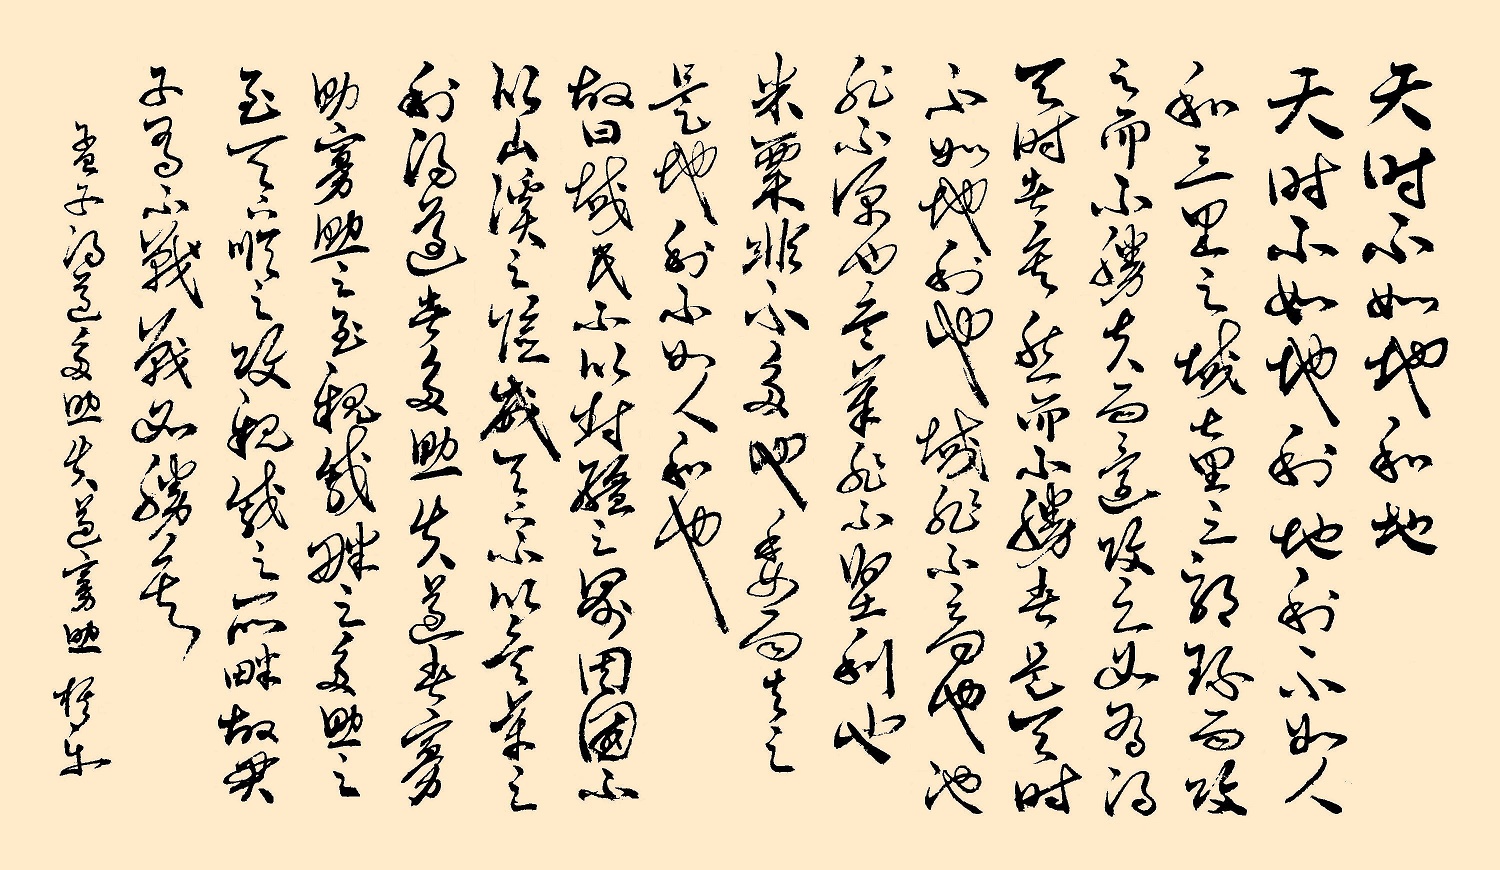 天时不如地利地
天时不如地利地利不如人
和三里之城七里之郭環而攻
之而不勝夫而環攻之必有得
天时者矣然而不勝者是天时
不如地利也城非不高也池
非不深也兵革非不堅利也
米粟非不多也委而去之
是地利不如人和也
故曰域民不以封疆之界固國不
以山溪之險威天下不以兵革之
利得道者多助失道者寡
助寡助之至親戚畔之多助之
至天下順之攻親戚之所畔故君
子有不戰戰必勝矣
孟子得道多助失道寡助